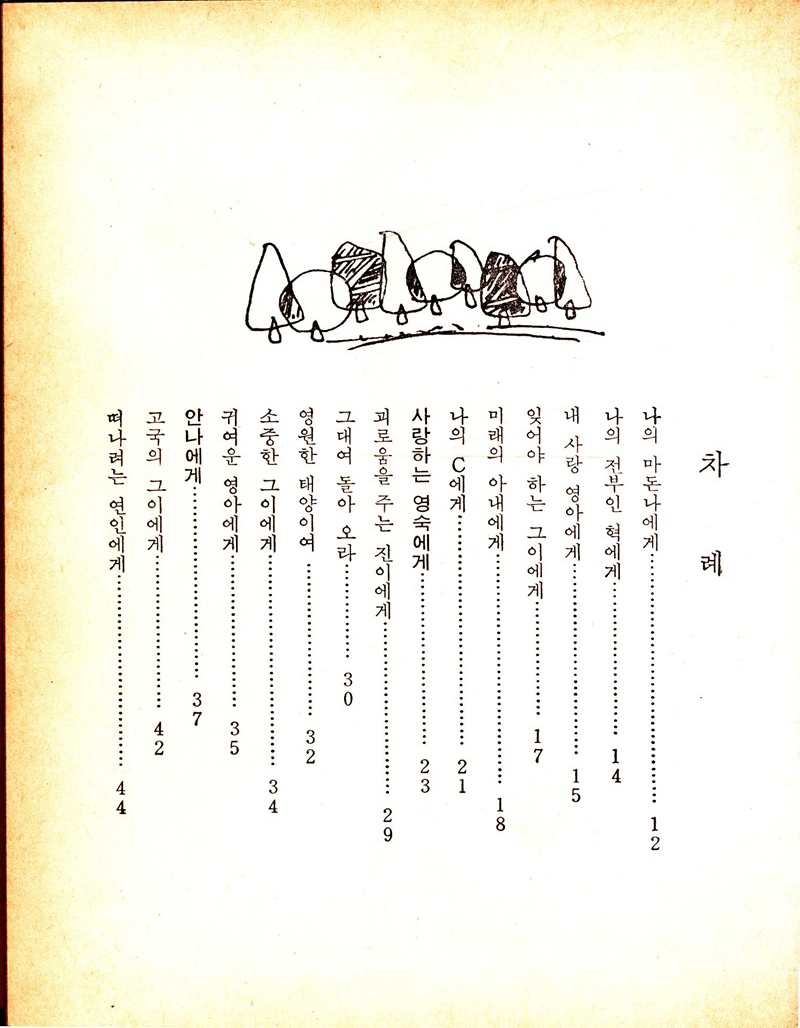 차 례
나의 마돈나에게 12
나의 전부인 혁에게 14
내 사랑 영아에게 15
잊어야 하는 그이에게 17
미래의 아내에게 18
나의 C에게 21
사랑하는 영숙에게 23
괴로움을 주는 진이에게 29
그대여 돌아 오라 30
영원한 태양이여 32
소중한 그이에게 34
귀여운 영아에게 35
안나에게 37
고국의 그이에게 42
떠나려는 연인에게 44